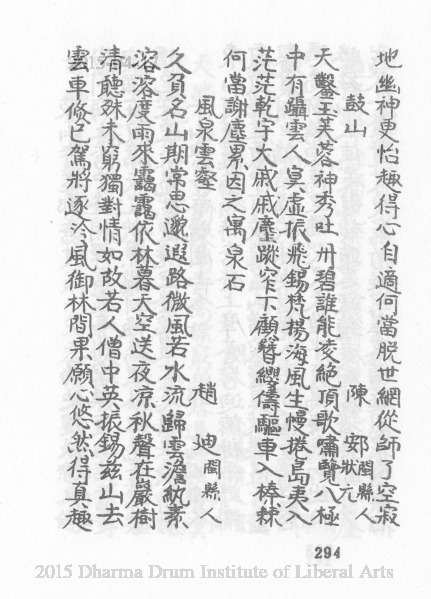 地幽神更怡趣得心自適何當脱世網從師了空寂
鼓山 陳郊閩縣人狀元
天鑿玉芙蓉神秀吐丹碧誰能凌絶頂歌嘯覽八極
中有躡雲人冥虛振飛錫梵揚海風生慢捲島夷入
茫茫乾宇大戚戚塵蹤窄下顧簪纓儔驅車入榛棘
何當謝塵累因之寓泉石
風泉雲壑 趙迪閩縣人
久負名山期常思邈遐路微風若水流歸雲澹紈素
溶溶度雨來靄靄依林暮天空送夜凉秋聲在巖樹
清聽殊未窮獨對情如故若人僧中英振錫茲山去
雲車倏已駕將逐泠風御林間果願心悠然得真趣
294
2015 Dharma Drum Institute of Liberal Arts